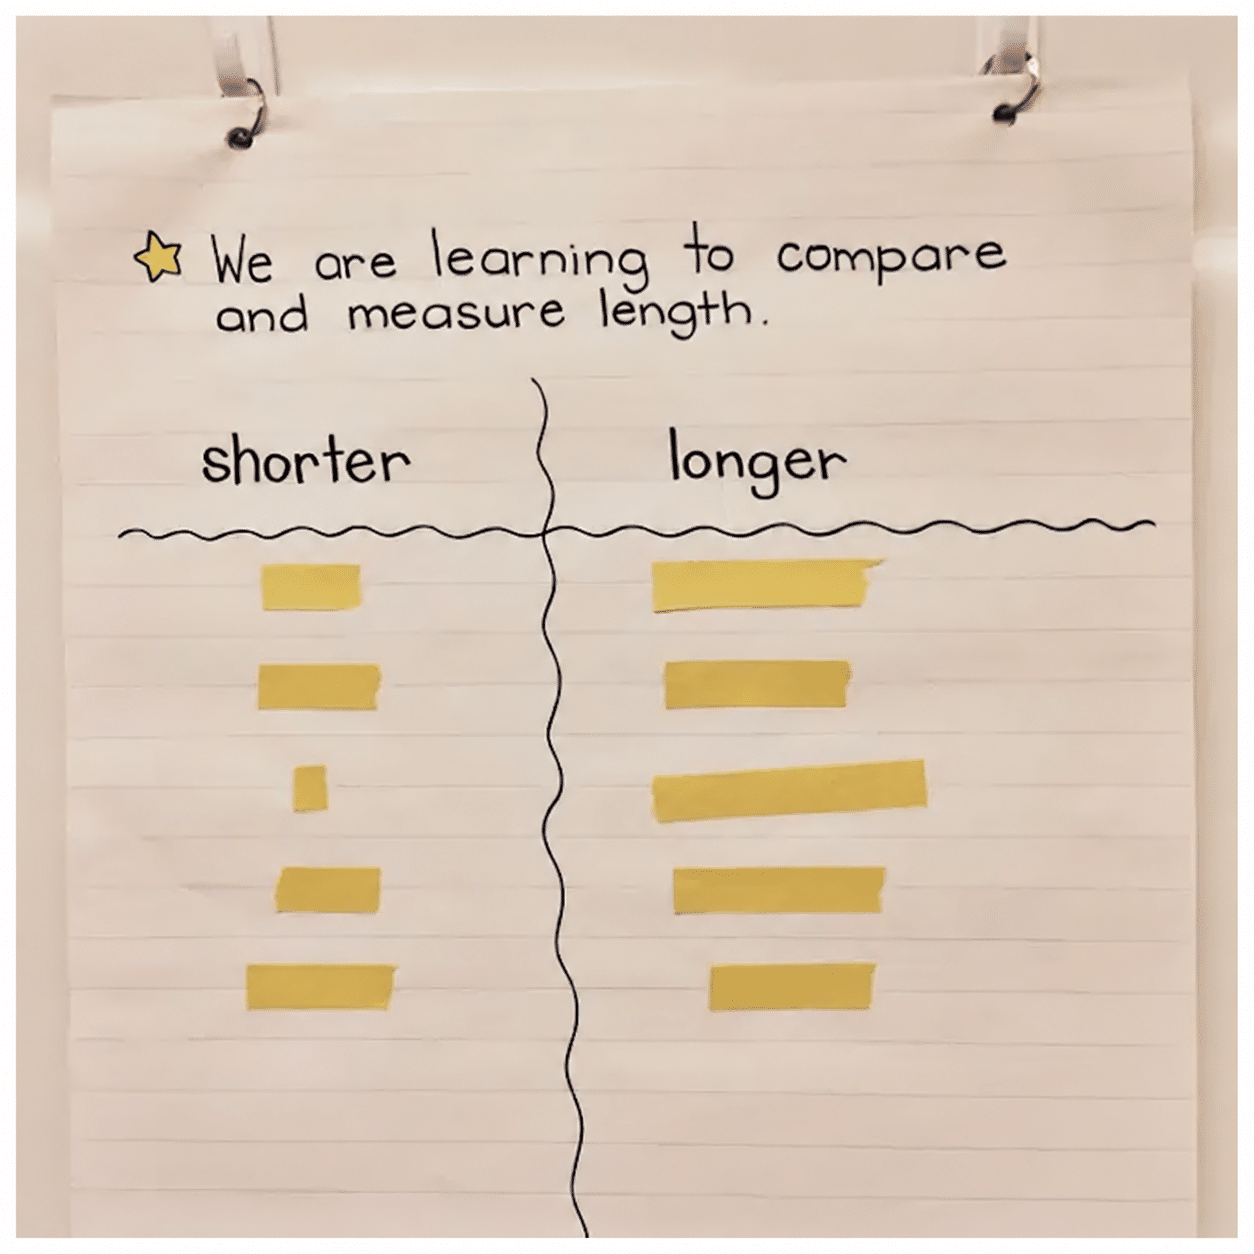 We are learning to compare
and measure length.
shorter
longer